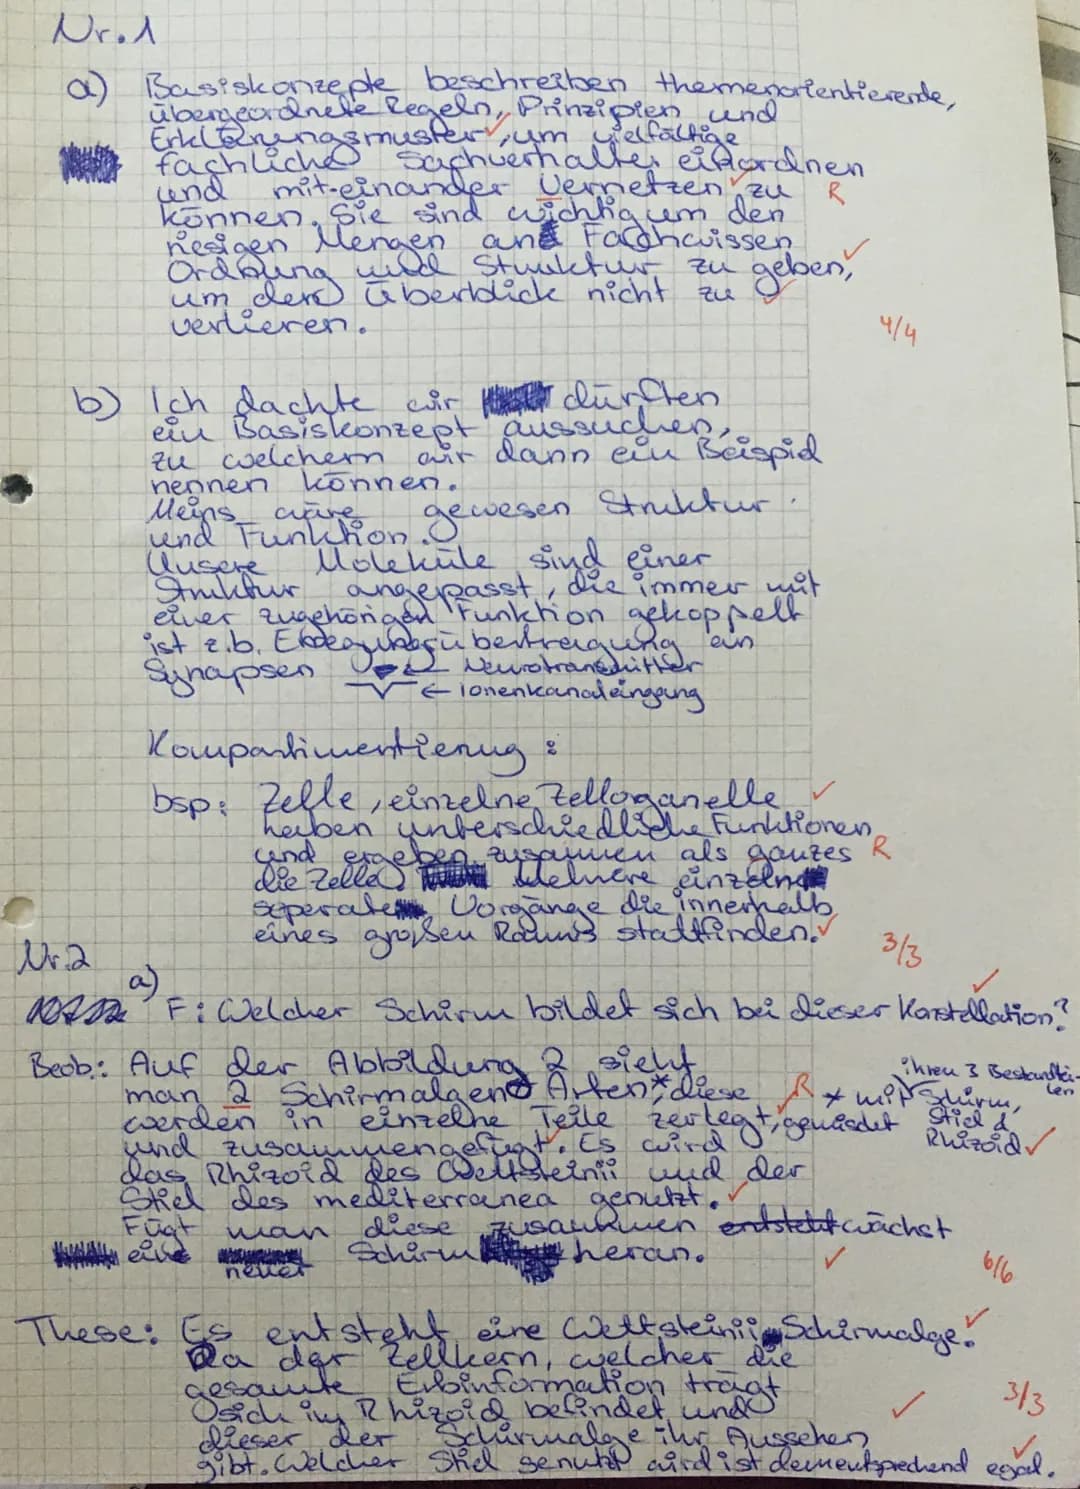 Nr. 1
a) Basiskonzepte beschreiben themenorientierende,
übergeordnete Regeln, Prinzipien und
Erklärungsmuster, um vielfältige
fachliche Sachverhalte einordnen
und mit-einander Vernetzen zu R
können. Sie sind wichtig um den
riesigen Mengen an Fachwissen
Ordnung und Struktur zu geben,
um den Überblick nicht zu
verlieren.
4/4
b) Ich dachte wir dürften
ein Basiskonzept aussuchen,
zu welchem wir dann ein Beispiel
nennen können.
Meins wäre gewesen Struktur
und Funktion.
Unsere Moleküle sind einer
Struktur angepasst, die immer mit
einer zugehörigen Funktion gekoppelt
ist z.b. an
Synapsen ← Neurotransmitter
← Ionenkanaleingang
Kompartimentierung :
bsp: Zelle, einzelne Zellorganelle
haben unterschiedliche Funktionen
und ergeben zusammen als ganzes R
die Zelle. Mehrere einzelne
seperate Vorgänge die innerhalb
eines großen Raums stattfinden.
3/3
Nr.2
a) F: Welcher Schirm bildet sich bei dieser Konstellation?
Beob.: Auf der Abbildung 2 sieht
man 2 Schirmalgen Arten*, diese R
* mit ihren 3 Bestandtei-
len
Schirm,
Stiel &
Rhizoid
werden in einzelne Teile zerlegt, gemischt
und zusammengefügt. Es wird
das Rhizoid des Wettsteinii und der
Stiel des mediterranea genutzt.
Fügt man diese zusammen entsteht wächst
ein neuer Schirm heran.
6/6
These: Es entsteht eine Wettsteinii Schirmalge.
Da der Zellkern, welcher die
gesamte Erbinformation trägt
sich im Rhizoid befindet und
3/3
dieser der Schirmalge ihr Aussehen
gibt. Welcher Stiel genutzt wird ist dementsprechend egal.